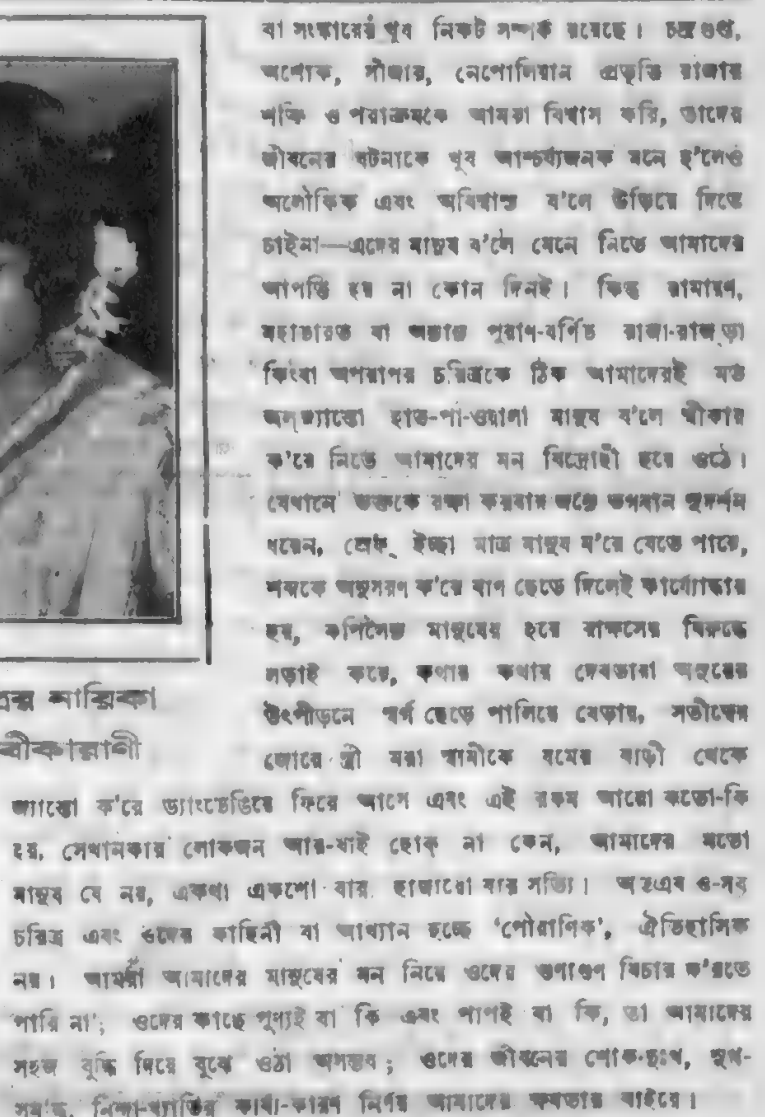 বা সংস্কারের খুব নিকট সম্পর্ক রয়েছে। চন্দ্রগুপ্ত,
অশোক, সীজার, নেপোলিয়ান প্রভৃতি রাজার
শক্তি ও পরাক্রমকে আমরা বিশ্বাস করি, তাদের
জীবনের ঘটনাকে খুব আশ্চর্য্যজনক মনে হ'লেও
অলৌকিক এবং অবিশ্বাস্য ব'লে উড়িয়ে দিতে
চাইনা—এদের মানুষ ব'লে মেনে নিতে আমাদের
আপত্তি হয় না কোন দিনই। কিন্তু রামায়ণ,
মহাভারত বা অন্যান্য পুরাণ-বর্ণিত রাজা-রাজ্‌ড়া
কিংবা অপরাপর চরিত্রকে ঠিক আমাদেরই মত
অল্‌জ্যান্তো হাত-পা-ওয়ালা মানুষ ব'লে স্বীকার
ক'রে নিতে আমাদের মন বিদ্রোহী হয়ে ওঠে।
যেখানে ভক্তকে রক্ষা করবার জন্যে ভগবান সুদর্শন
ধরেন, স্রেফ্ ইচ্ছা মাত্র মানুষ ম'রে যেতে পারে,
শব্দকে অনুসরণ ক'রে বাণ ছেড়ে দিলেই কার্য্যোদ্ধার
হয়, কপিসৈন্য মানুষের হয়ে রাক্ষসের বিরুদ্ধে
লড়াই করে, কথায় কথায় দেবতারা অসুরের
উৎপীড়নে স্বর্গ ছেড়ে পালিয়ে বেড়ায়, সতীত্বের
জোরে স্ত্রী মরা স্বামীকে যমের বাড়ী থেকে
জ্যান্তো ক'রে ড্যাংডেঙিয়ে ফিরে আসে এবং এই রকম আরো কতো-কি
হয়, সেখানকার লোকজন আর-যাই হোক্ না কেন, আমাদের মতো
মানুষ যে নয়, একথা একশো বার হাজারো বার সত্যি। অতএব ও-সব
চরিত্র এবং ওদের কাহিনী বা আখ্যান হচ্ছে 'পৌরাণিক', ঐতিহাসিক
নয়। আমরা আমাদের মানুষের মন নিয়ে ওদের গুণাগুণ বিচার ক'রতে
পারি না; ওদের কাছে পুণ্যই বা কি এবং পাপই বা কি, তা আমাদের
সহজ বুদ্ধি দিয়ে বুঝে ওঠা অসম্ভব; ওদের জীবনের শোক-দুঃখ, সুখ-
সমৃদ্ধি, নিন্দা-খ্যাতির কার্য্য-কারণ নির্ণয় আমাদের ক্ষমতার বাইরে।
নায়িকা